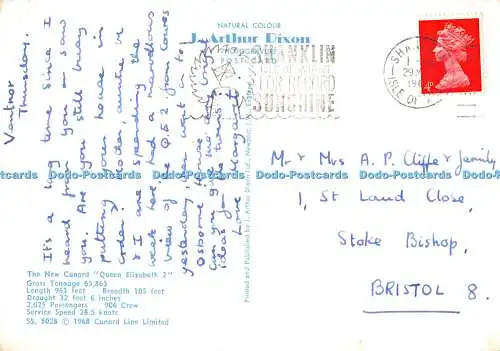 NATURAL COLOUR
J. Arthur Dixon
PHOTOGRAVURE
POSTCARD
SHANKLIN
SUNSHINE
SHA
29
196
ISLE OF
4D
Ventnor
Thursday.
It's a long time since I
heard from you or saw
you. Are you still busy
putting your house in
order? Mother, auntie Vi
& I are spending the
week here, had a marvellous
view of the Q.E.2 from Cowes
yesterday, also went to
Osborne House.
Can you give me any
ideas for the twins?
Love Margaret
Mr & Mrs A. P. Cliffe & family
1, St Land Close,
Stoke Bishop,
BRISTOL 8.
The New Cunard "Queen Elizabeth 2"
Gross Tonnage 65,863
Length 963 feet Breadth 105 feet
Draught 32 feet 6 inches
2,025 Passengers 906 Crew
Service Speed 28.5 knots
SS. 8028 © 1968 Cunard Line Limited
Printed and Published by J. Arthur Dixon Ltd., Newport, I.W., England.
Dando-Postcards Dando-Postcards Dando-Postcards Dando-Postcards Dando-Postcards